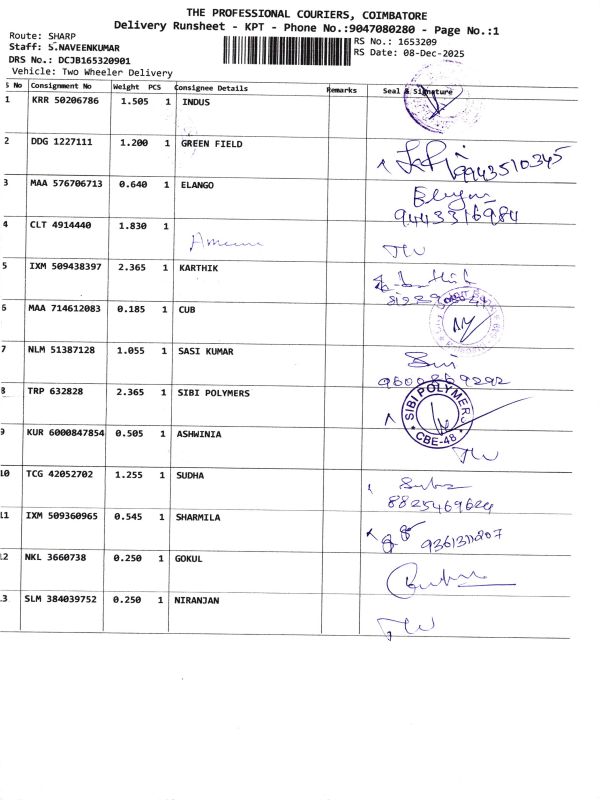 THE PROFESSIONAL COURIERS, COIMBATORE
Delivery Runsheet - KPT - Phone No.:9047080280 - Page No.:1
Route: SHARP
Staff: S.NAVEENKUMAR
DRS No.: DCJB165320901
Vehicle: Two Wheeler Delivery
RS No.: 1653209
RS Date: 08-Dec-2025
S No Consignment No Weight PCS Consignee Details Remarks Seal & Signature
1 KRR 50206786 1.505 1 INDUS
2 DDG 1227111 1.200 1 GREEN FIELD
9943510345
3 MAA 576706713 0.640 1 ELANGO
9443316984
4 CLT 4914440 1.830 1
5 IXM 509438397 2.365 1 KARTHIK
6 MAA 714612083 0.185 1 CUB
7 NLM 51387128 1.055 1 SASI KUMAR
9600869292
8 TRP 632828 2.365 1 SIBI POLYMERS
SIBI POLYMERS
CBE-48
9 KUR 6000847854 0.505 1 ASHWINIA
10 TCG 42052702 1.255 1 SUDHA
8825469624
11 IXM 509360965 0.545 1 SHARMILA
12 NKL 3660738 0.250 1 GOKUL
13 SLM 384039752 0.250 1 NIRANJAN